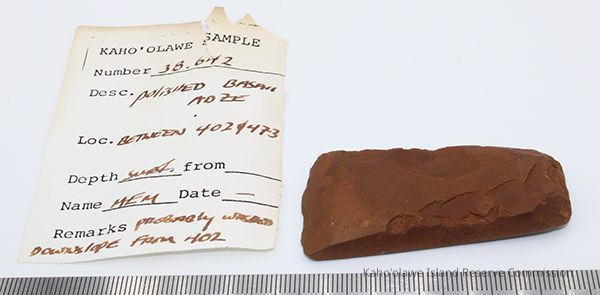 KAHO'OLAWE SAMPLE
Number 38,642
Desc. POLISHED BASALT
ADZE
Loc. BETWEEN 402 & 473
Depth surf. from
Name HEM Date –
Remarks probably washed
DOWNSLOPE FROM 402
Kaho'olawe Island Reserve Commission